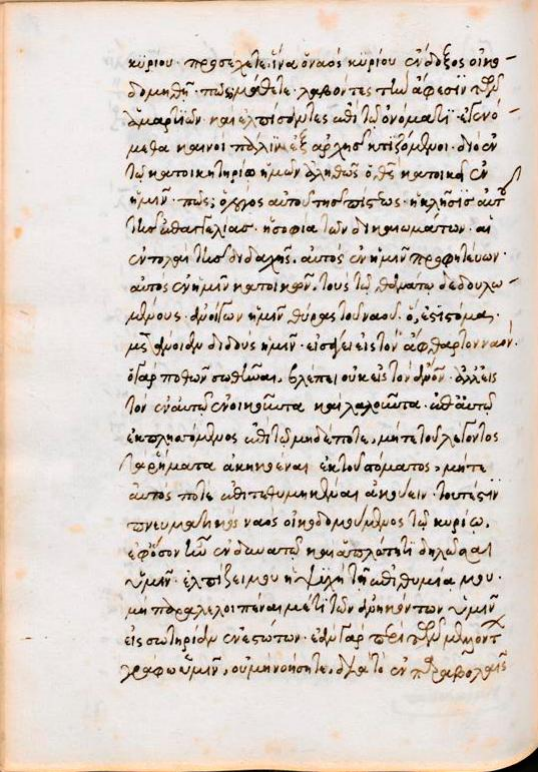 κυρίου· προσέχετε· ἵνα ὁ ναὸς κυρίου ἐνδόξως οἰκο-
δομηθῇ· πῶς, μάθετε· λαβόντες τὴν ἄφεσιν τῶν
ἁμαρτιῶν· καὶ ἐλπίσαντες ἐπὶ τῷ ὀνόματι· ἐγενό-
μεθα καινοί· πάλιν ἐξ ἀρχῆς κτιζόμενοι· διὸ ἐν
τῷ κατοικητηρίῳ ἡμῶν ἀληθῶς ὁ θεὸς κατοικεῖ ἐν
ἡμῖν· πῶς; ὁ λόγος αὐτοῦ τῆς πίστεως· ἡ κλῆσις αὐτοῦ
τῆς ἐπαγγελίας· ἡ σοφία τῶν δικαιωμάτων· αἱ
ἐντολαὶ τῆς διδαχῆς· αὐτὸς ἐν ἡμῖν προφητεύων·
αὐτὸς ἐν ἡμῖν κατοικῶν· τοὺς τῷ θανάτῳ δεδουλω-
μένους· ἀνοίγων ἡμῖν θύρας τοῦ ναοῦ· ὅ ἐστι στόμα·
μετάνοιαν διδοὺς ἡμῖν· εἰσάγει εἰς τὸν ἄφθαρτον ναόν·
ὁ γὰρ ποθῶν σωθῆναι, βλέπει οὐκ εἰς τὸν ἄνθρωπον· ἀλλ' εἰς
τὸν ἐν αὐτῷ ἐνοικοῦντα καὶ λαλοῦντα· ἐπ' αὐτῷ
ἐκπλησσόμενος ἐπὶ τῷ μηδέποτε, μήτε τοῦ λέγοντος
τὰ ῥήματα ἀκηκοέναι ἐκ τοῦ στόματος, μήτε
αὐτός ποτε ἐπιτεθυμηκέναι ἀκούειν· τοῦτέστιν
πνευματικὸς ναὸς οἰκοδομούμενος τῷ κυρίῳ.
ἐφ' ὅσον ἦν ἐν δυνατῷ καὶ ἁπλότητι δηλῶσαι
ὑμῖν· ἐλπίζει μου ἡ ψυχὴ τῇ ἐπιθυμίᾳ μου·
μὴ παραλελοιπέναι με τι τῶν ἀνηκόντων ὑμῖν
εἰς σωτηρίαν ἐνεστώτων· ἐὰν γὰρ περὶ τῶν μελλόντων
γράφω ὑμῖν, οὐ μὴ νοήσητε, διὰ τὸ ἐν παραβολαῖς